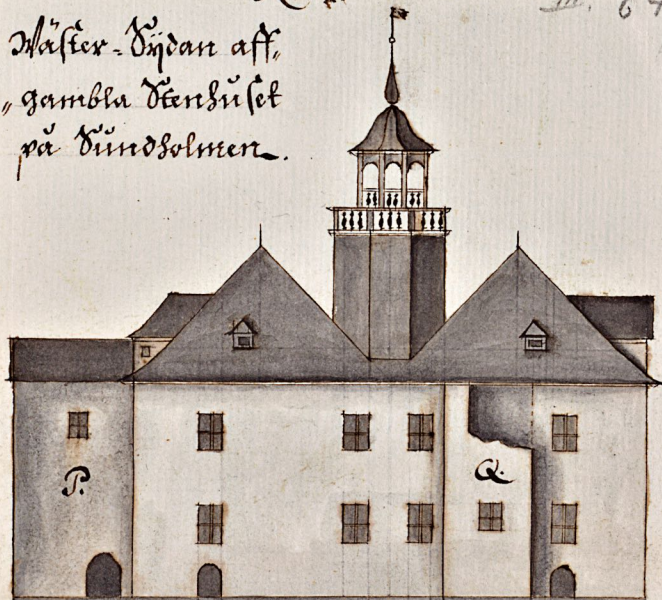 Wäster=Sÿdan aff„
„gambla Stenhuset
på Sundholmen.
P.
Q.